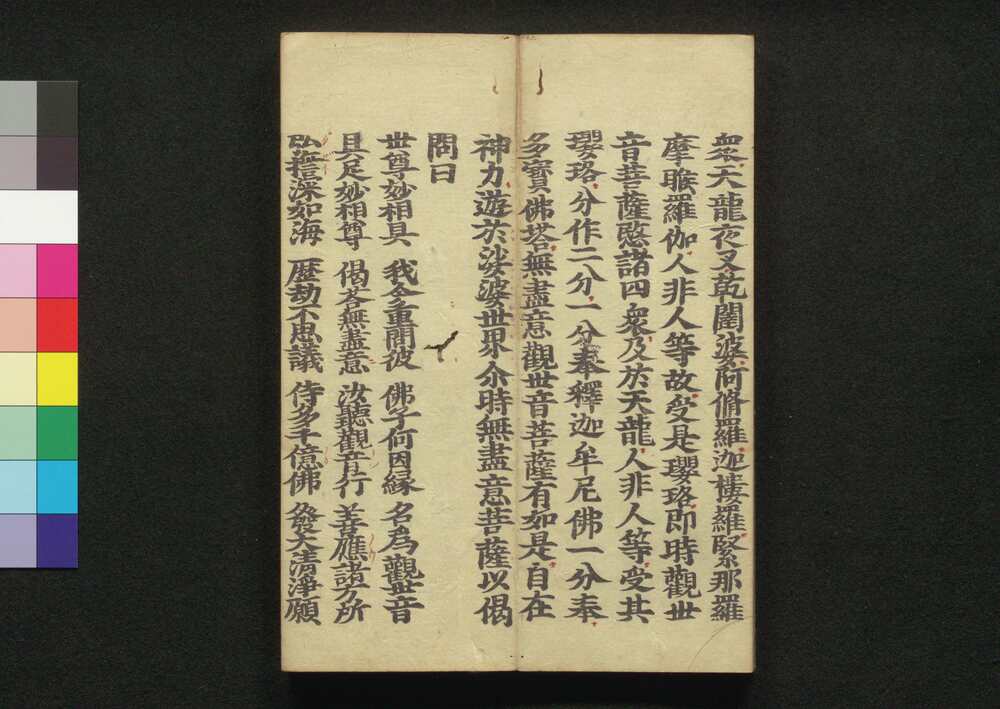 衆天龍夜叉乾闥婆阿脩羅迦樓羅緊那羅
摩睺羅伽人非人等故受是瓔珞即時觀世
音菩薩愍諸四衆及於天龍人非人等受其
瓔珞分作二分一分奉釋迦牟尼佛一分奉
多寶佛塔無盡意觀世音菩薩有如是自在
神力遊於娑婆世界尒時無盡意菩薩以偈
問曰
世尊妙相具 我今重問彼 佛子何因縁 名爲觀世音
具足妙相尊 偈荅無盡意 汝聽觀音行 善應諸方所
弘誓深如海 歴劫不思議 侍多千億佛 發大清淨願